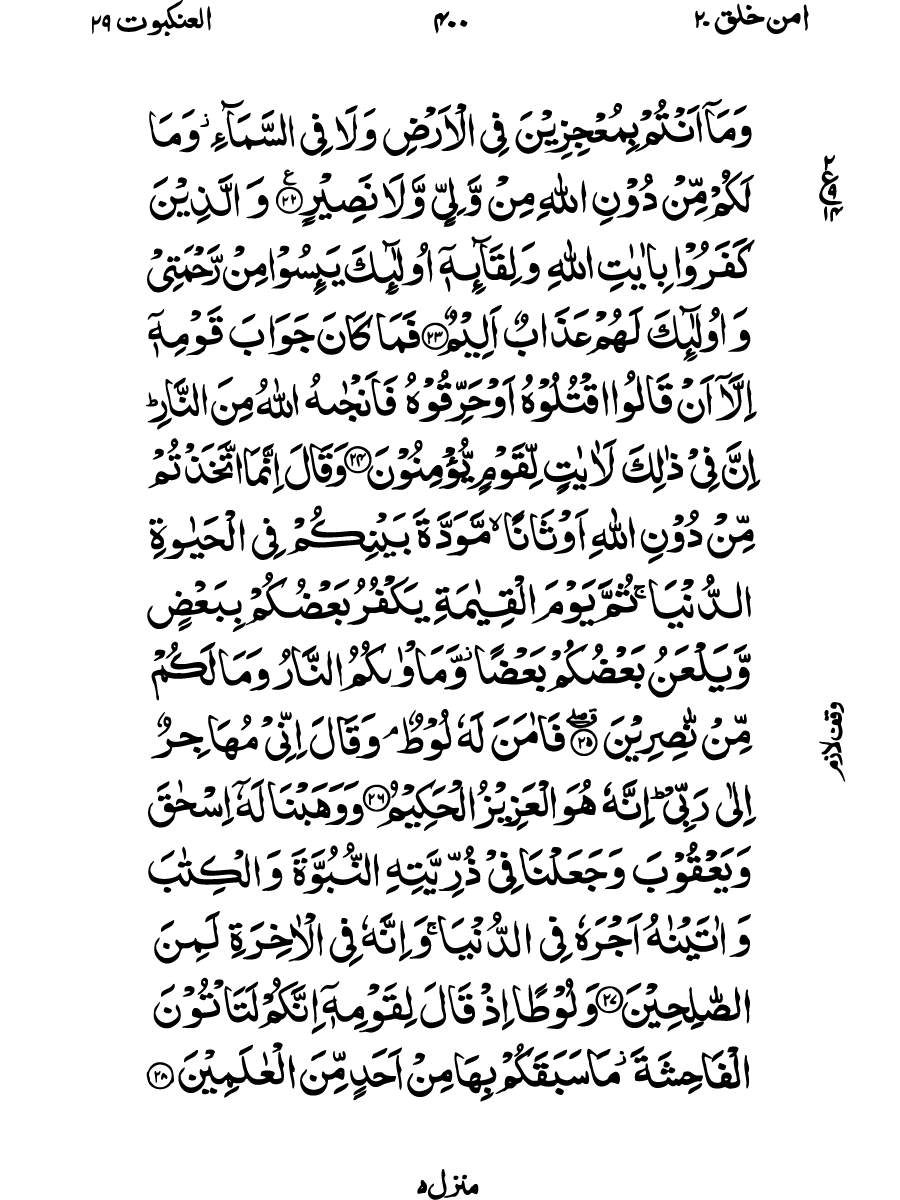 امن خلق ۲۰ ۴۰۰ العنكبوت ۲۹
وَمَاۤ اَنْتُمْ بِمُعْجِزِيْنَ فِي الْاَرْضِ وَلَا فِي السَّمَآءِ ؗ وَمَا
لَكُمْ مِّنْ دُوْنِ اللّٰهِ مِنْ وَّلِيٍّ وَّلَا نَصِيْرٍ ؑ ﴿۲۲﴾ وَ الَّذِيْنَ
كَفَرُوْا بِاٰيٰتِ اللّٰهِ وَلِقَآئِهٖۤ اُولٰٓئِكَ يَئِسُوْا مِنْ رَّحْمَتِيْ
وَ اُولٰٓئِكَ لَهُمْ عَذَابٌ اَلِيْمٌ ﴿۲۳﴾ فَمَا كَانَ جَوَابَ قَوْمِهٖۤ
اِلَّاۤ اَنْ قَالُوا اقْتُلُوْهُ اَوْ حَرِّقُوْهُ فَاَنْجٰىهُ اللّٰهُ مِنَ النَّارِ ؕ
اِنَّ فِيْ ذٰلِكَ لَاٰيٰتٍ لِّقَوْمٍ يُّؤْمِنُوْنَ ﴿۲۴﴾ وَقَالَ اِنَّمَا اتَّخَذْتُمْ
مِّنْ دُوْنِ اللّٰهِ اَوْثَانًا ۙ مَّوَدَّةَ بَيْنِكُمْ فِي الْحَيٰوةِ
الدُّنْيَا ۚ ثُمَّ يَوْمَ الْقِيٰمَةِ يَكْفُرُ بَعْضُكُمْ بِبَعْضٍ
وَّيَلْعَنُ بَعْضُكُمْ بَعْضًا ؗ وَّمَاْوٰىكُمُ النَّارُ وَمَا لَكُمْ
مِّنْ نّٰصِرِيْنَ ﴿۲۵﴾ فَاٰمَنَ لَهٗ لُوْطٌ ۘ وَقَالَ اِنِّيْ مُهَاجِرٌ
اِلٰى رَبِّيْ ؕ اِنَّهٗ هُوَ الْعَزِيْزُ الْحَكِيْمُ ﴿۲۶﴾ وَوَهَبْنَا لَهٗۤ اِسْحٰقَ
وَيَعْقُوْبَ وَجَعَلْنَا فِيْ ذُرِّيَّتِهِ النُّبُوَّةَ وَالْكِتٰبَ
وَ اٰتَيْنٰهُ اَجْرَهٗ فِي الدُّنْيَا ۚ وَاِنَّهٗ فِي الْاٰخِرَةِ لَمِنَ
الصّٰلِحِيْنَ ﴿۲۷﴾ وَلُوْطًا اِذْ قَالَ لِقَوْمِهٖۤ اِنَّكُمْ لَتَاْتُوْنَ
الْفَاحِشَةَ ؗ مَا سَبَقَكُمْ بِهَا مِنْ اَحَدٍ مِّنَ الْعٰلَمِيْنَ ﴿۲۸﴾
۲ ع ۹ ۱۴
وقف لازم
منزل ۵